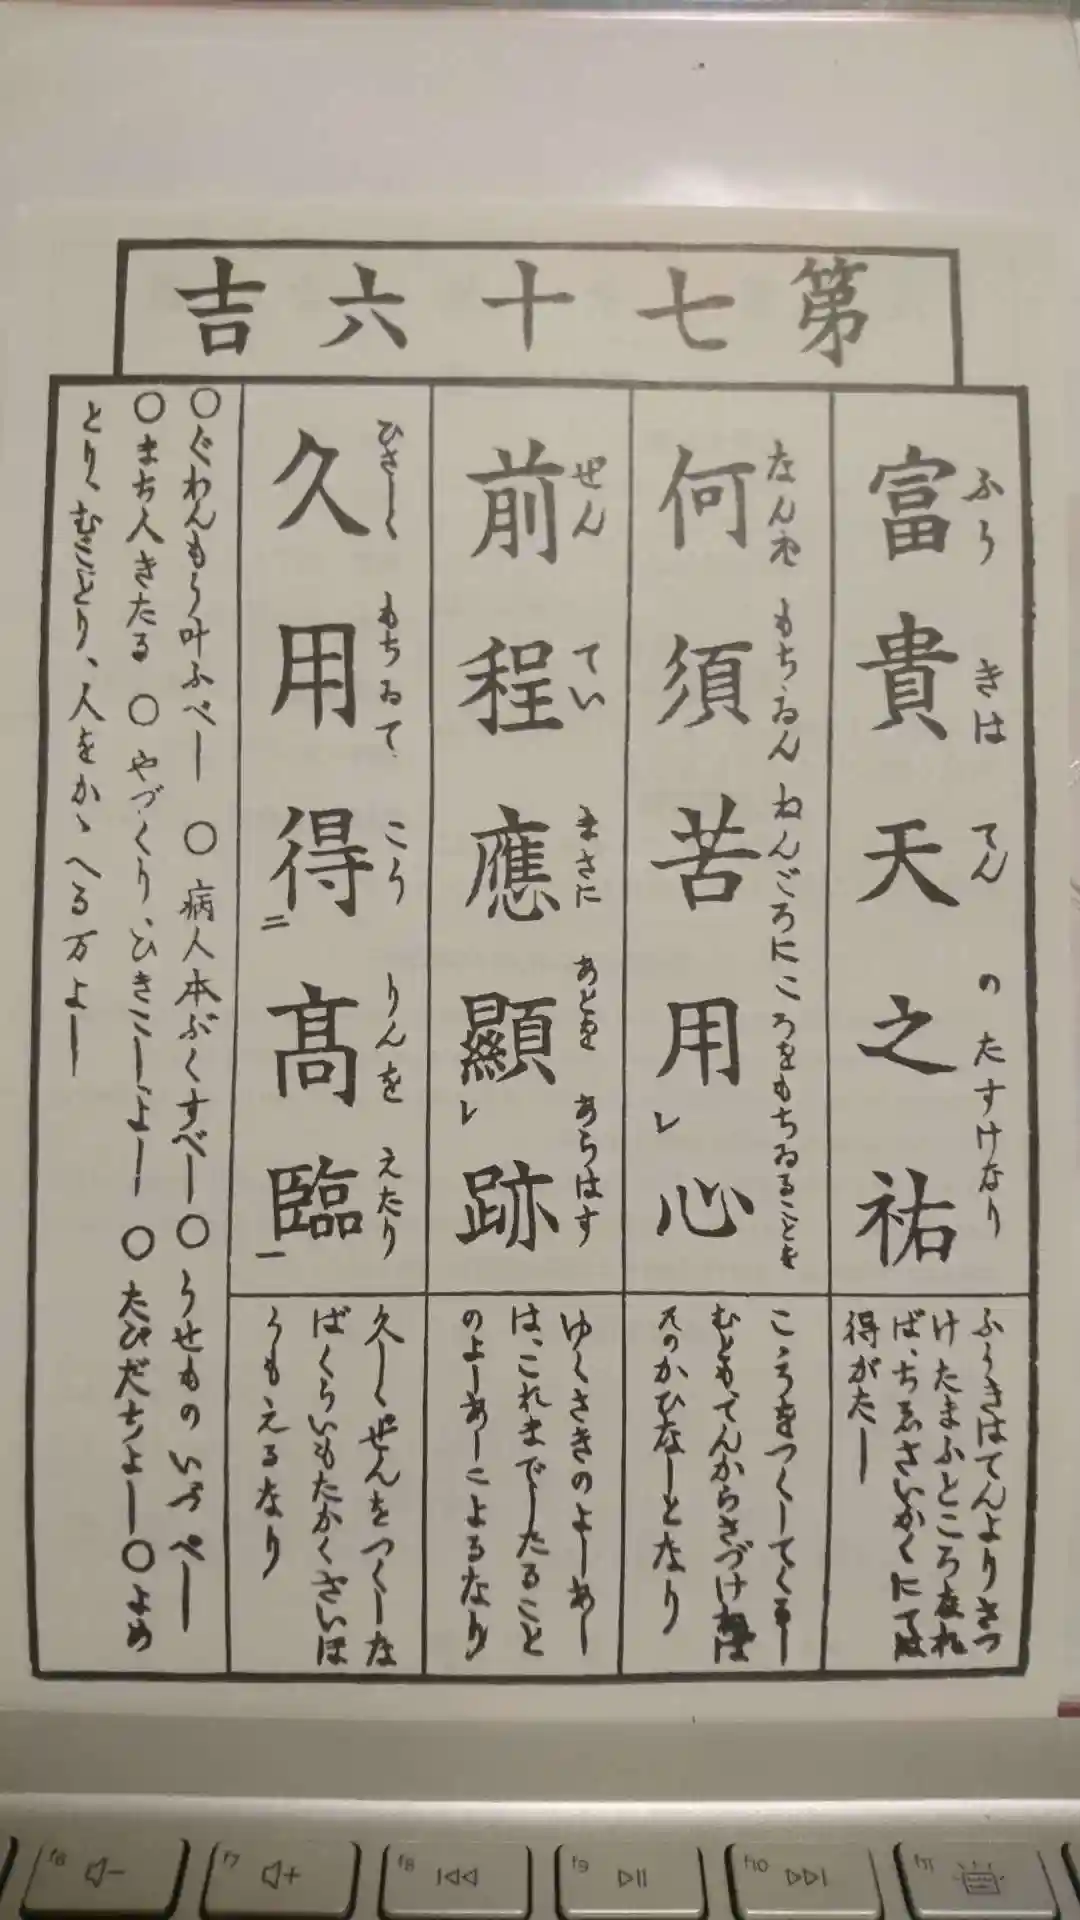 第七十六吉
富貴天之祐
ふうきはてんのたすけなり
ふうきはてんよりさづ
けたまふところなれ
ば、ちゑさいかくにては
得がたし
何須苦用レ心
なんぞもちゐんねんごろにこころをもちゐることを
こゝろをつくしてくるし
むともてんからさづけねば
そのかひなしとなり
前程應顯レ跡
ぜんていまさにあとをあらはす
ゆくさきのよしあし
は、これまでしたること
のよしあしによるなり
久用得二高臨一
ひさしくもちゐてこうりんをえたり
久しくぜんをつくしな
ばくらいもたかくさいほ
うもえるなり
〇ぐわんもう叶ふべし 〇病人本ぶくすべし〇うせものいづべし
〇まち人きたる 〇やづくり、ひきこしよし 〇たびだちよし〇よめ
とり、むことり、人をかゝへる万よし
f6
f7
f8
f9
f10
f11